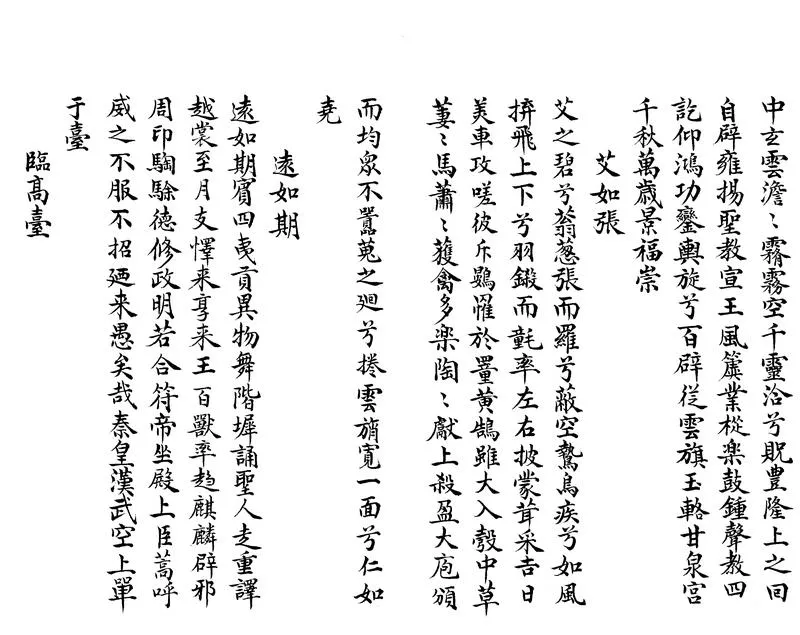 中玄雲澹〻霱霧空千靈洽兮貺豊隆上之回
自辟雍揚聖教宣王風簴業樅楽鼓鍾聲教四
訖仰鴻功鑾輿旋兮百辟従雲旗玉輅甘泉宮
千秋萬歳景福崇
艾如張
艾之碧兮蓊葱張而羅兮蔽空鷙鳥疾兮如風
拚飛上下兮羽鎩而氄率左右披蒙茸采吉日
美車攻嗟彼斥鷃罹於罿黄鵠雖大入彀中草
萋〻馬蕭〻獲禽多楽陶〻獻上殺盈大庖頒
而均衆不囂蒐之廻兮捲雲旓寛一面兮仁如
堯
遠如期
遠如期賓四夷貢異物舞階墀誦聖人走重譯
越裳至月支懌来享来王百獸率趋麒麟辟邪
周印騊駼德修政明若合符帝坐殿上臣蒿呼
威之不服不招廼来愚矣哉秦皇漢武空上單
于臺
臨髙臺